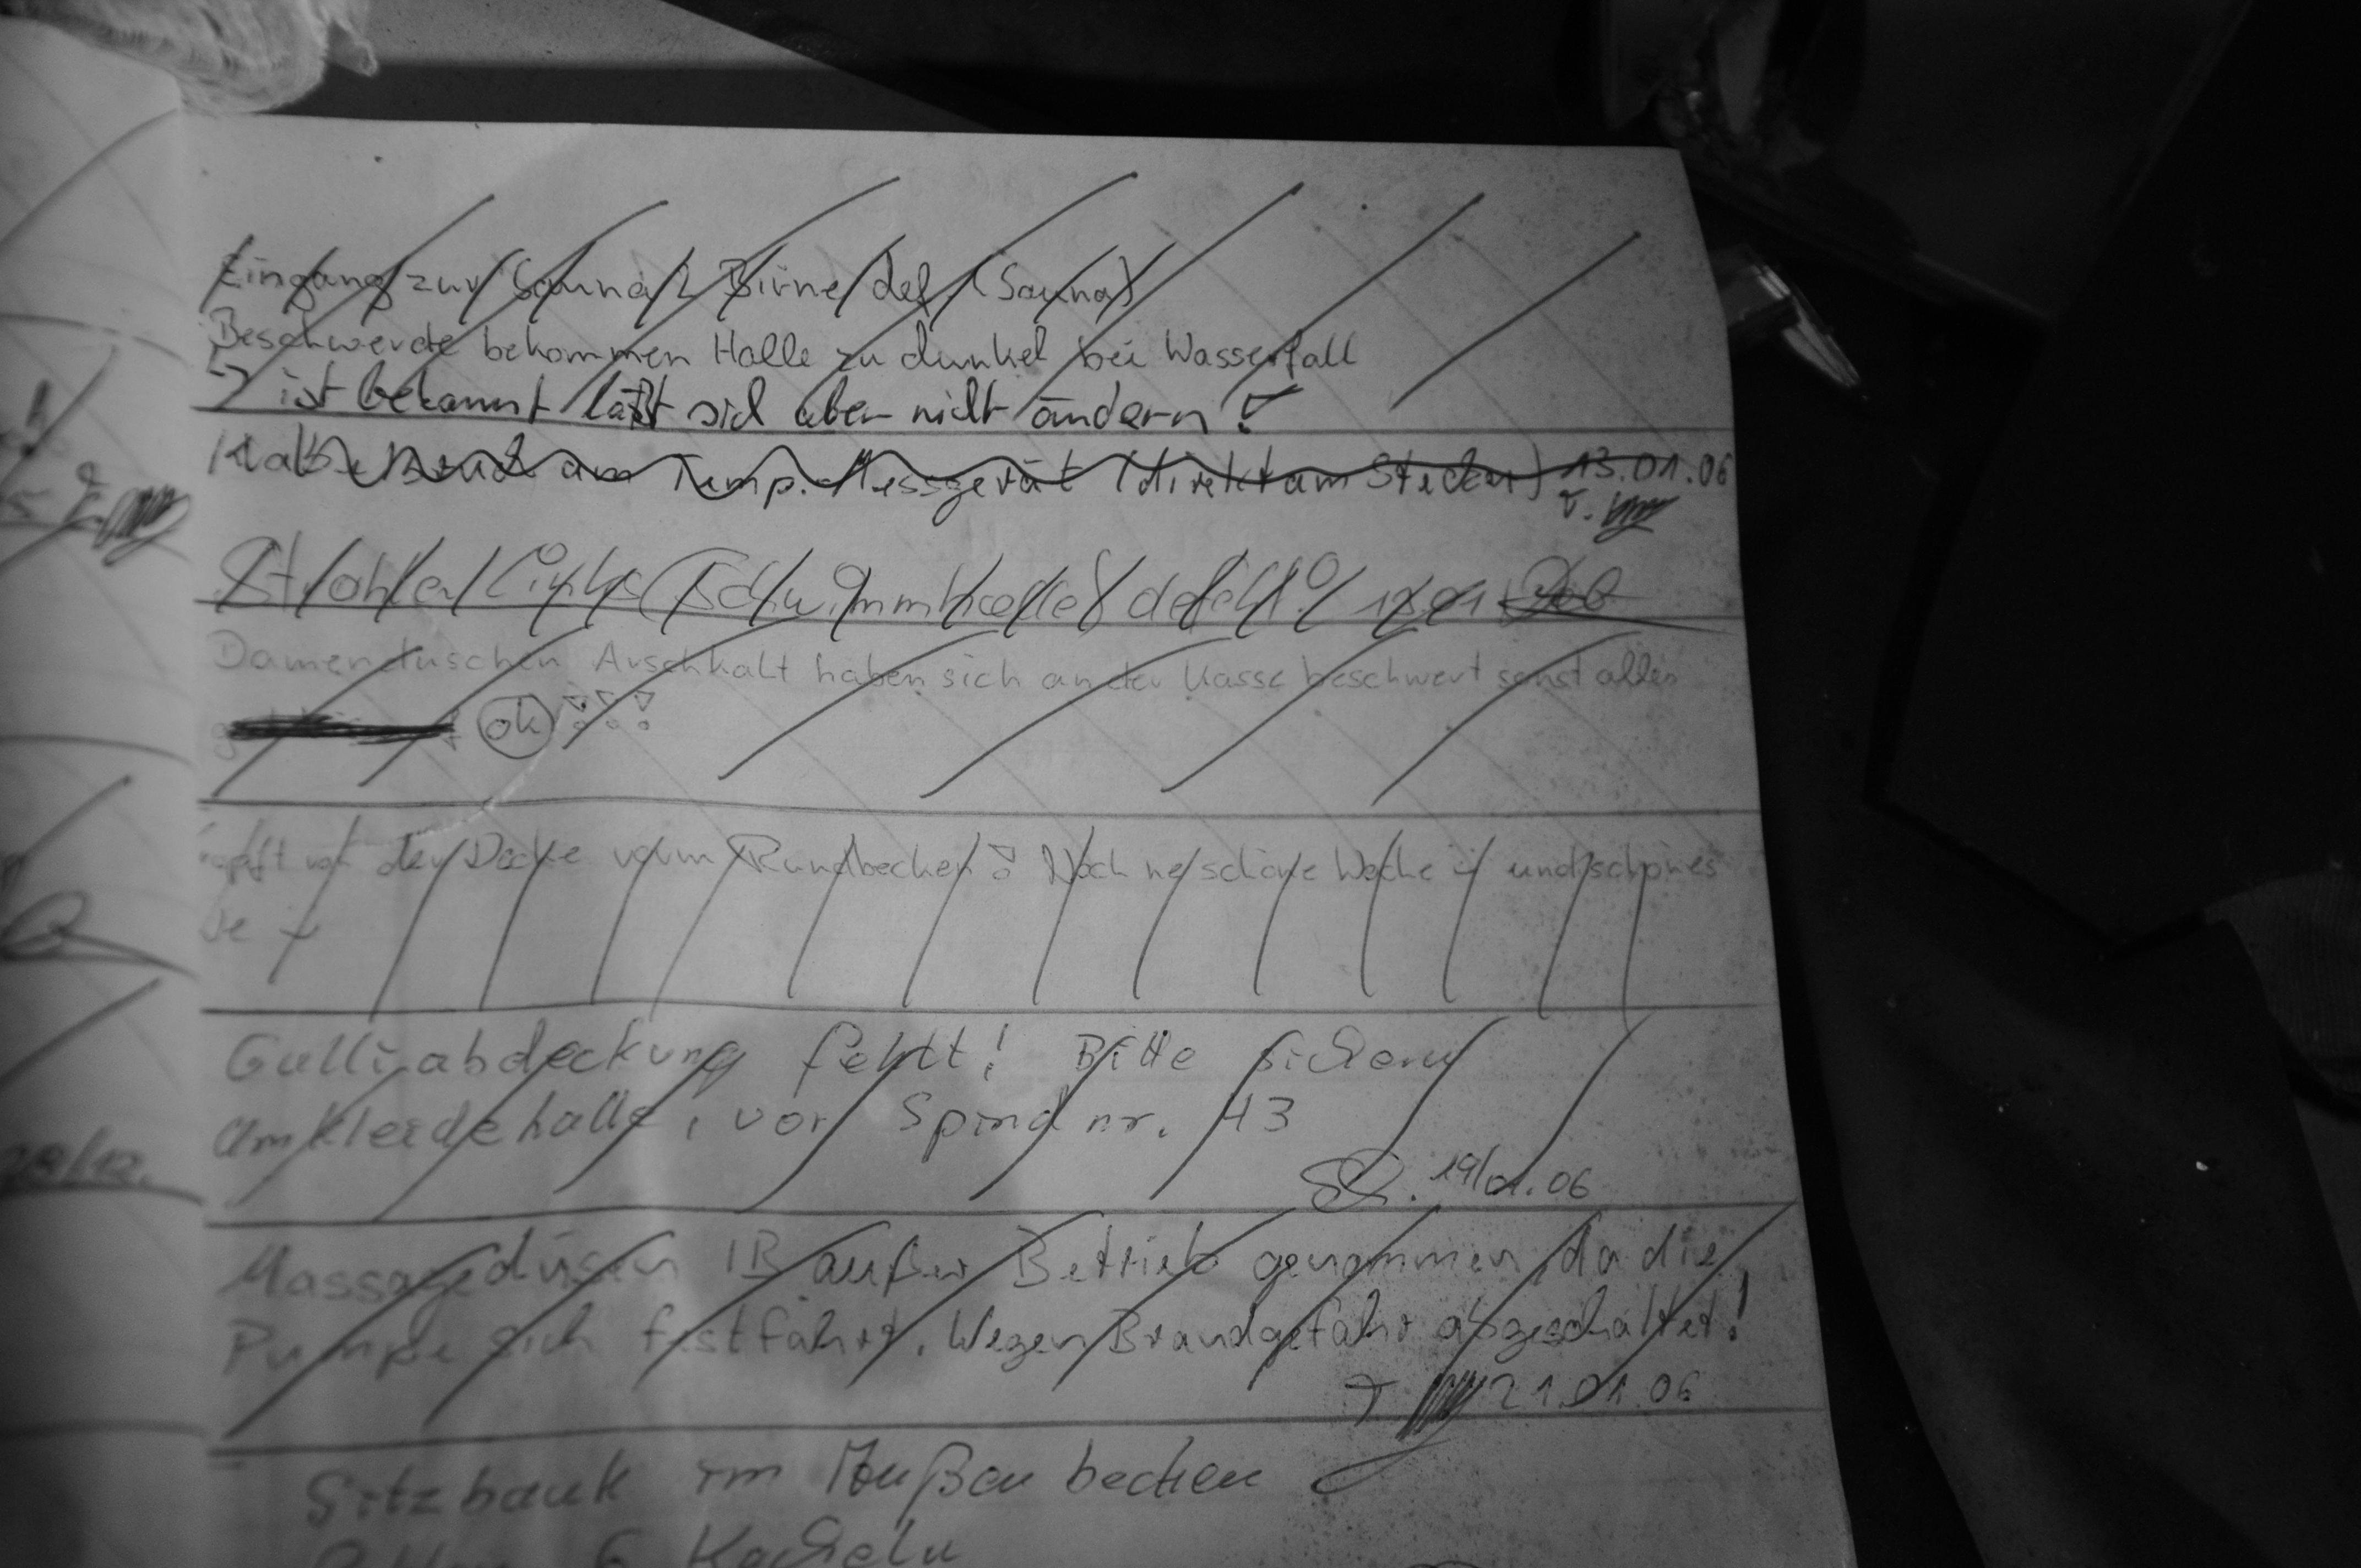 Eingang zur Sauna 2 Birne def. (Sauna)
Beschwerde bekommen Halle zu dunkel bei Wasserfall
↳ ist bekannt läßt sich aber nicht ändern!
am Temp. Messgerät (direkt am Stecker) 13.01.06
Strahler links (Schwimmhalle) defekt!
Damenduschen Arschkalt haben sich an der Kasse beschwert sonst alles
ok !!!
der Decke vom Rundbecken! Noch ne schöne Woche und schönes
Gulliabdeckung fehlt! Bitte sichern
Umkleidehalle, vor Spind nr. 43
19/01.06
Massagedüsen IB außer Betrieb genommen, da die
Pumpe sich festfährt. Wegen Brandgefahr abgeschaltet!
21.01.06
Sitzbank im Außenbecken
6 Kacheln
28/12.